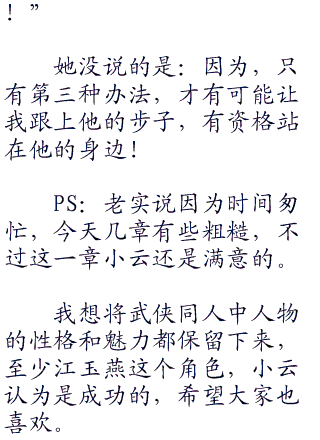 ！”
她没说的是：因为，只
有第三种办法，才有可能让
我跟上他的步子，有资格站
在他的身边！
PS：老实说因为时间匆
忙，今天几章有些粗糙，不
过这一章小云还是满意的。
我想将武侠同人中人物
的性格和魅力都保留下来，
至少江玉燕这个角色，小云
认为是成功的，希望大家也
喜欢。